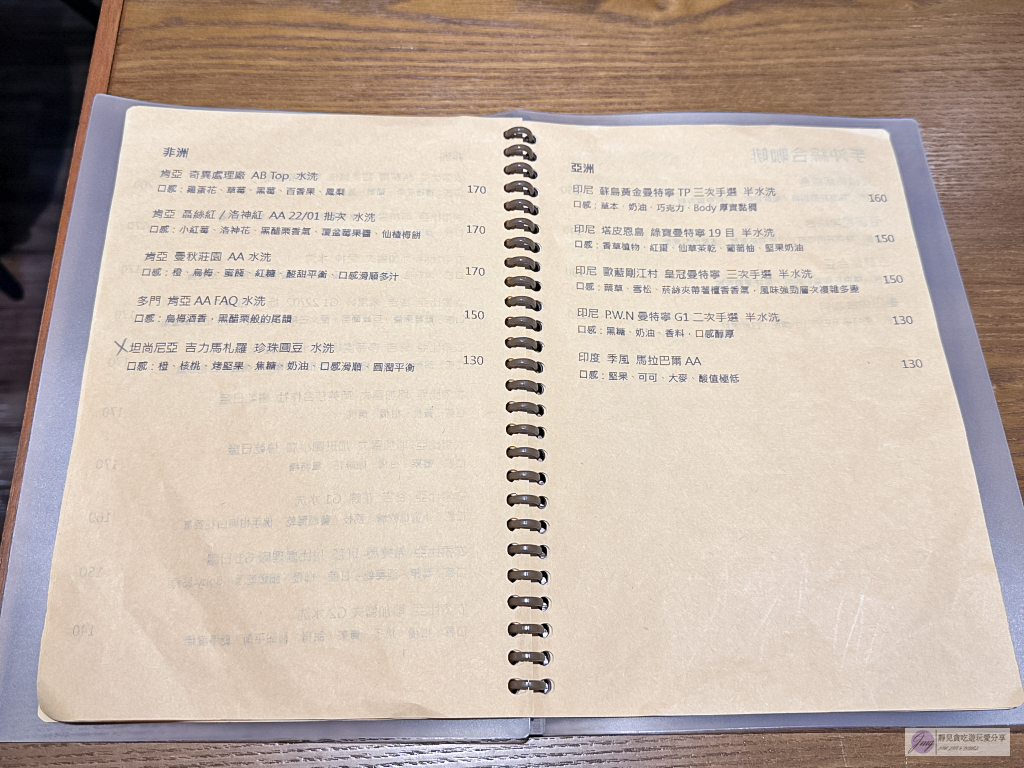 非洲
肯亞 奇異處理廠 AB Top 水洗
口感：雞蛋花、草莓、黑莓、百香果、鳳梨 170
肯亞 晶絲紅 / 洛神紅 AA 22/01 批次 水洗
口感：小紅莓、洛神花、黑醋栗香氣、覆盆莓果醬、仙楂梅餅 170
肯亞 曼秋莊園 AA 水洗
口感：橙、烏梅、蜜餞、紅糖、酸甜平衡、口感滑順多汁 170
多門 肯亞 AA FAQ 水洗
口感：烏梅酒香，黑醋栗般的尾韻 150
X坦尚尼亞 吉力馬札羅 珍珠圓豆 水洗
口感：橙、核桃、烤堅果、焦糖、奶油、口感滑順、圓潤平衡 130
亞洲
印尼 蘇島黃金曼特寧 TP 三次手選 半水洗 160
口感：草本、奶油、巧克力、Body 厚實黏稠
印尼 塔皮恩島 綠寶曼特寧 19 目 半水洗 150
口感：香草植物、紅棗、仙草茶乾、葡萄柚、堅果奶油
印尼 歐藍剛江村 皇冠曼特寧 三次手選 半水洗 150
口感：藥草、雪松、菸絲夾帶著檀香香氣，風味強勁層次複雜多變
印尼 P.W.N 曼特寧 G1 二次手選 半水洗 130
口感：黑糖、奶油、香料、口感醇厚
印度 季風 馬拉巴爾 AA 130
口感：堅果、可可、大麥、酸值極低
Jung
聊見貪吃遊玩愛分享